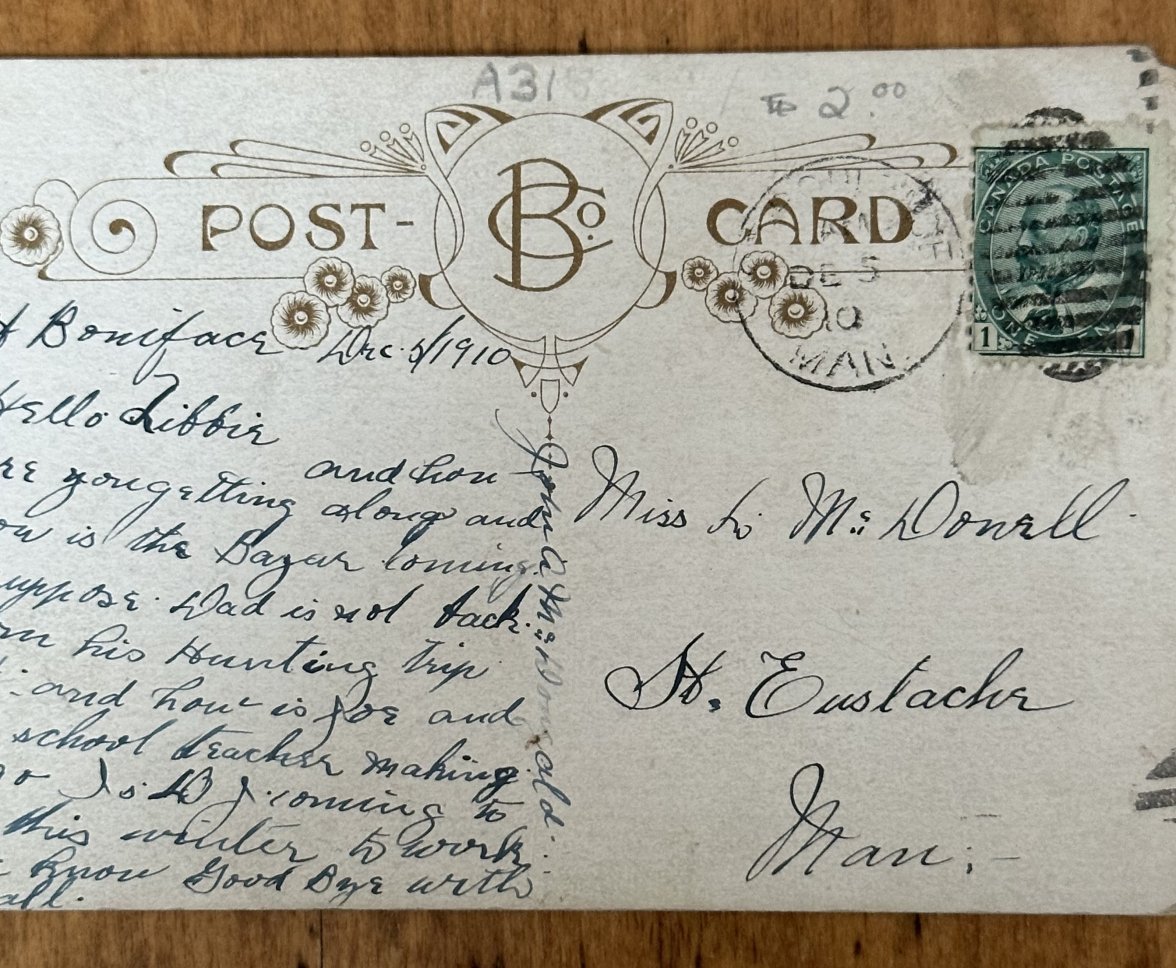 A31
2.00
POST-
B Co.
CARD
DE 5
10
MAN.
CANADA POSTAGE
1 ONE CENT 1
Boniface Dec. 5/1910
Hello Libbie
and how
re you getting along and
ow is the Bazar coming
uppose Dad is not back
om his Hunting trip
and how is Joe and
school teacher making
Is D J. coming to
this winter to work
know Good Bye with
all.
John A McDonald.
Miss L. Mc Donell
St. Eustache
Man.